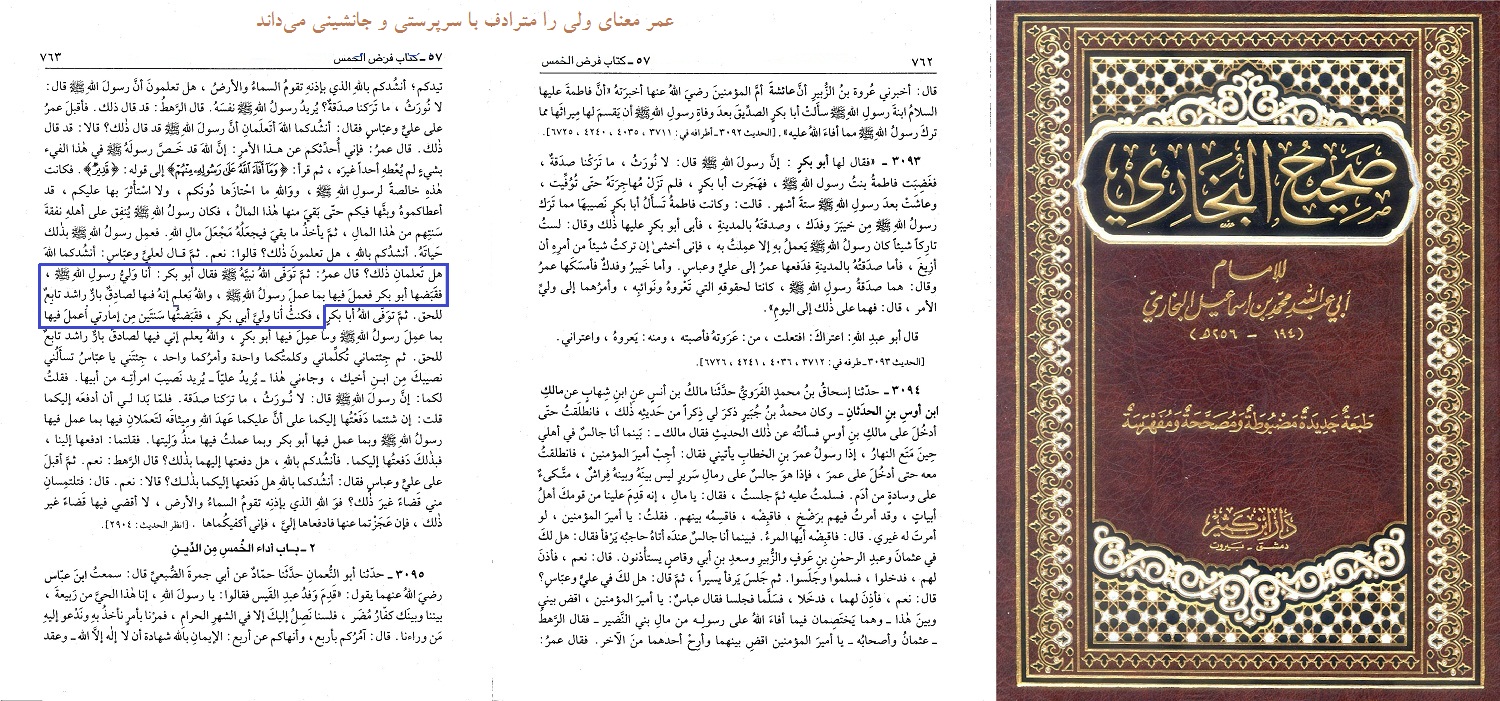 عمر معنای ولی را مترادف با سرپرستی و جانشینی می‌داند
٥٧ ـ كتاب فرض الخمس
٧٦٢
قال: أخبرني عُروة بنُ الزُّبيرِ أنَّ عائشةَ أمَّ المؤمنينَ رضيَ اللهُ عنها أخبرَتهُ «أنَّ فاطمةَ عليها
السلامُ ابنةَ رسولِ اللهِ ﷺ سألَتْ أبا بكرٍ الصدِّيقَ بعدَ وفاةِ رسولِ اللهِ ﷺ أن يَقسِمَ لها مِيراثَها مما
تركَ رسولُ اللهِ ﷺ مما أفاءَ اللهُ عليه». [الحديث ٣٠٩٢ ـ أطرافه في: ٣٧١١ ، ٤٠٣٥ ، ٤٢٤٠ ، ٦٧٢٥].
٣٠٩٣ ـ «فقال لها أبو بكرٍ : إنَّ رسولَ اللهِ ﷺ قال: لا نُورَثُ ، ما تَرَكنا صدَقةٌ ،
فغَضِبَت فاطمةُ بنتُ رسولِ اللهِ ﷺ ، فهَجَرت أبا بكرٍ ، فلم تَزَلْ مُهاجِرَتَهُ حتى تُوُفِّيت ،
وعاشَتْ بعدَ رسولِ اللهِ ﷺ ستةَ أشهر. قالت: وكانت فاطمةُ تَسألُ أبا بكرٍ نَصيبَها مما تَرَك
رسولُ اللهِ ﷺ مِن خيبَرَ وفدَك ، وصدَقتَهُ بالمدينةِ ، فأبى أبو بكرٍ عليها ذٰلك وقال: لستُ
تارِكاً شيئاً كان رسولُ اللهِ ﷺ يَعملُ بهِ إلا عملتُ به ، فإني أخشىٰ إن تركتُ شيئاً من أمرِهِ أن
أزِيغَ ، فأما صدَقتُهُ بالمدينةِ فدَفعها عمرُ إلى عليٍّ وعباسٍ. وأما خيبرُ وفدكٌ فأمسَكها عمرُ
وقال: هما صدَقةُ رسولِ اللهِ ﷺ ، كانتا لحقوقهِ التي تَعْروهُ ونَوائبِه ، وأمرُهما إلى وليِّ
الأمر ، قال: فهما على ذٰلك إلى اليومِ».
قال أبو عبدِ اللهِ: اعتراكَ: افتعلت ، من: عَرَوتهُ فأصبته ، ومنه: يَعروهُ ، واعتراني.
[الحديث ٣٠٩٣ ـ طرفه في: ٣٧١٢ ، ٤٠٣٦ ، ٤٢٤١ ، ٦٧٢٦].
٣٠٩٤ ـ حدّثنا إسحاقُ بنُ محمدٍ الفَرَويُّ حدَّثنا مالكُ بن أنسٍ عنِ ابنِ شهابٍ عن مالكِ
ابن أوسِ بنِ الحدَثانِ ـ وكان محمدُ بنُ جُبَيرٍ ذكرَ لي ذِكراً من حَديثهِ ذٰلك ، فانطلقتُ حتى
أدخُلَ على مالكِ بنِ أوسٍ فسألتُه عن ذٰلك الحديثِ فقال مالك ـ : بَينما أنا جالسٌ في أهلي
حِينَ مَتَع النهارُ ، إذا رسولُ عمرَ بنِ الخطابِ يأتيني فقال: أجِبْ أميرَ المؤمنين ، فانطلقتُ
معه حتى أدخُلَ على عمرَ ، فإذا هوَ جالسٌ على رِمالِ سَريرٍ ليس بينَهُ وبينَهُ فِراشٌ ، متَّكىءٌ
على وسادةٍ من أدَم. فسلمتُ عليه ثمَّ جلستُ ، فقال: يا مالِ ، إنه قَدِمَ علينا من قومكَ أهلُ
أبياتٍ ، وقد أمرتُ فيهم برَضْخٍ ، فاقبِضْه ، فاقسِمْه بينهم. فقلتُ: يا أميرَ المؤمنين ، لو
أمرتَ له غيري. قال: فاقبِضْه أيُّها المرءُ. فبينما أنا جالسٌ عندَه أتاهُ حاجبُه يَرْفَأ فقال: هل لكَ
في عثمانَ وعبدِ الرحمٰنِ بنِ عَوفٍ والزُّبيرِ وسعدِ بن أبي وقاصٍ يَستأذنون. قال: نعم ، فأذنَ
لهم ، فدخلوا ، فسلموا وجَلَسوا. ثم جَلَسَ يَرفأ يَسيراً ، ثمَّ قال: هل لكَ في عليٍّ وعبّاسٍ؟
قال: نعم ، فأذِنَ لهما ، فدخَلا ، فسَلَّما فجلسا فقال عباسٌ: يا أميرَ المؤمنين ، اقضِ بيني
وبينَ هٰذا ـ وهما يَختَصِمان فيما أفاءَ اللهُ على رسولِه من مالِ بني النَّضير ـ فقال الرَّهطُ
ـ عثمانُ وأصحابُه ـ يا أميرَ المؤمنين اقضِ بينهما وأرِحْ أحدَهما منَ الآخر. فقال عمرُ:
٥٧ ـ كتاب فرض الخمس
٧٦٣
تيدكم؛ أنشُدكم باللهِ الذي بإذنهِ تقومُ السماءُ والأرضُ ، هل تعلمونَ أنَّ رسولَ اللهِ ﷺ قال:
لا نُورَثُ ، ما تَرَكنا صدَقةٌ؟ يُريدُ رسولُ اللهِ ﷺ نفسَهُ. قال الرَّهطُ: قد قال ذلك. فأقبلَ عمرُ
على عليٍّ وعبّاسٍ فقال: أنشُدُكما اللهَ أتَعلَمانِ أنَّ رسولَ اللهِ ﷺ قد قال ذٰلك؟ قالا: قد قال
ذٰلك. قال عمرُ: فإني أُحدِّثكم عن هـذا الأمرِ: إنَّ اللهَ قد خـصَّ رسولَهُ ﷺ في هٰذا الفيءِ
بشيءٍ لم يُعْطهِ أحداً غيرَه ، ثم قرأ: ﴿وَمَآ أَفَآءَ ٱللَّهُ عَلَىٰ رَسُولِهِۦ مِنۡهُمۡ﴾ إلى قوله: ﴿قَدِيرٌ﴾. فكانت
هٰذهِ خالصةً لرسولِ اللهِ ﷺ ، وواللهِ ما احْتازَها دُونَكم ، ولا اسْتأثرَ بها عليكم ، قد
أعطاكموهُ وبثَّها فيكم حتّى بَقيَ منها هٰذا المالُ ، فكان رسولُ اللهِ ﷺ يُنفِق على أهلهِ نفقةَ
سَنتِهم من هٰذا المالِ ، ثمَّ يأخذُ ما بقيَ فيجعلُهُ مَجْعَلَ مالِ اللهِ. فعمِل رسولُ اللهِ ﷺ بذلك
حَياتَهُ. أنشدُكم باللهِ ، هل تعلمونَ ذلك؟ قالوا: نعم. ثمَّ قـال لعليٍّ وعبّاسٍ: أنشدُكما اللهَ
هل تَعلمانِ ذلك؟ قال عمرُ: ثمَّ تَوَفَّى اللهُ نبيَّهُ ﷺ فقال أبو بكر: أنا وَليُّ رسولِ اللهِ ﷺ ،
فقبَضها أبو بكرٍ فعملَ فيها بما عملَ رسولُ اللهِ ﷺ ، واللهُ يَعلم إنهُ فيها لصادِقٌ بارٌّ راشد تابعٌ
للحق. ثمَّ توَفَّى اللهُ أبا بكرٍ ، فكنتُ أنا وليَّ أبي بكرٍ ، فقبَضتُها سَنتَين مِن إمارتي أعملُ فيها
بما عملَ رسولُ اللهِ ﷺ وما عمِلَ فيها أبو بكر ، واللهُ يعلمُ إني فيها لصادقٌ بارٌّ راشدٌ تابعٌ
للحق. ثم جِئتماني تُكلِّماني وكلمتُكما واحدة وأمرُكما واحد ، جِئتَني يا عبّاسُ تسألُني
نصيبَكَ مِن ابـنِ أخيك ، وجاءني هٰذا ـ يُريدُ عليّاً ـ يُريد نَصيبَ امرأتِـه من أبيها. فقلتُ
لكما: إنَّ رسولَ اللهِ ﷺ قال: لا نُـورَثُ ، ما تركنا صدَقة. فلمّا بَدا لـي أن أدفعَه إليكما
قلت: إن شئتما دَفَعْتُها إليكما على أنَّ عليكما عَهدَ اللهِ وميثاقَه لتَعمَلانِ فيها بما عمل فيها
رسولُ اللهِ ﷺ وبما عمل فيها أبو بكر وبما عملتُ فيها منذُ وَلِيتُها. فقلتما: ادفعها إلينا ،
فبذلك دَفَعتُها إليكما. فأنشدُكم باللهِ ، هل دفعتها إليهما بذلك؟ قال الرَّهط: نعم. ثمَّ أقبلَ
على عليٍّ وعباسٍ فقال: أنشدُكما باللهِ هل دَفعتها إليكما بذلـك؟ قالا: نعم. قال: فتلتمِسانِ
مني قَضاءً غيرَ ذٰلك؟ فوَ اللهِ الذي بإذنِه تقومُ السماءُ والأرض ، لا أقضي فيها قضاءً غير
ذلك ، فإن عَجَزْتما عنها فادفعاها إليَّ ، فإني أكفيكُماها ، [انظر الحديث: ٢٩٠٤].
٢ ـ بـاب أداء الخُمسِ مِن الدِّينِ
٣٠٩٥ ـ حدّثنا أبو النُّعمانِ حدَّثنا حمّادٌ عن أبي جمرةَ الضُّبعيِّ قال: سمعتُ ابنَ عبّاس
رضيَ اللهُ عنهما يقول: «قَدِمَ وَفدُ عبدِ القَيسِ فقالوا: يا رسولَ اللهِ ، إنا هٰذا الحيَّ من رَبيعةَ ،
بيننا وبينَك كفّارُ مُضَر ، فلسنا نَصِلُ إليكَ إلا في الشهرِ الحرام ، فمرْنا بأمرٍ نأخذُ بهِ ونَدعو إليهِ
مَن وراءنا. قال: آمُرُكم بأربع، وأنهاكم عن أربع: الإيمانِ بالله شهادة أن لا إلٰه إلاَّ الله ـ وعقد
صَحِيحُ البُخَارِيّ
للإمام
أبي عبد الله محمد بن اسماعيل البخاري
(١٩٤ – ٢٥٦هـ)
طَبعَةٌ جَدِيدَةٌ مَضبُوطَةٌ وَمُصَحَّحَةٌ وَمُفَهرَسَةٌ
دَارُ ابْن كَثِيْر
دمشق - بيروت